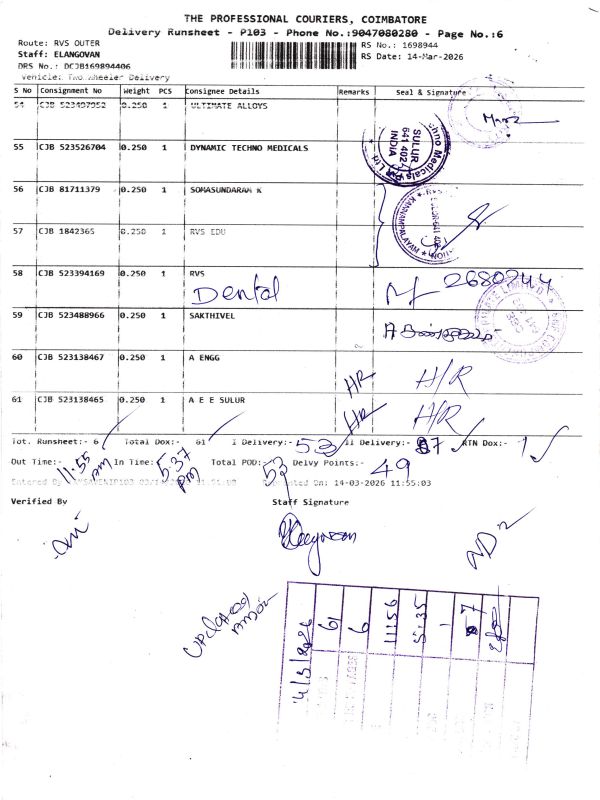 THE PROFESSIONAL COURIERS, COIMBATORE
Delivery Runsheet - P103 - Phone No.:9047080280 - Page No.:6
Route: RVS OUTER
RS No.: 1698944
Staff: ELANGOVAN
RS Date: 14-Mar-2026
DRS No.: DCJB169894406
Vehicle: Two Wheeler Delivery
S No Consignment No Weight PCS Consignee Details Remarks Seal & Signature
54 CJB 523497952 0.250 1 ULTIMATE ALLOYS
55 CJB 523526704 0.250 1 DYNAMIC TECHNO MEDICALS
SULUR 641 402 INDIA
56 CJB 81711379 0.250 1 SOMASUNDARAM K
KANNAMPALAYAM
57 CJB 1842365 0.250 1 RVS EDU
58 CJB 523394169 0.250 1 RVS
Dental
59 CJB 523488966 0.250 1 SAKTHIVEL
60 CJB 523138467 0.250 1 A ENGG
HR H/R
61 CJB 523138465 0.250 1 A E E SULUR
HR H/R
Tot. Runsheet:- 6 Total Dox:- 61 I Delivery:- 53 II Delivery:- 7 RTN Dox:- 1
Out Time:- 11:55 am In Time: 5:37 pm Total POD:- 53 Delvy Points:- 49
On: 14-03-2026 11:55:03
Verified By Staff Signature
14/3/2026
61
6
11:56
5:35
1
7